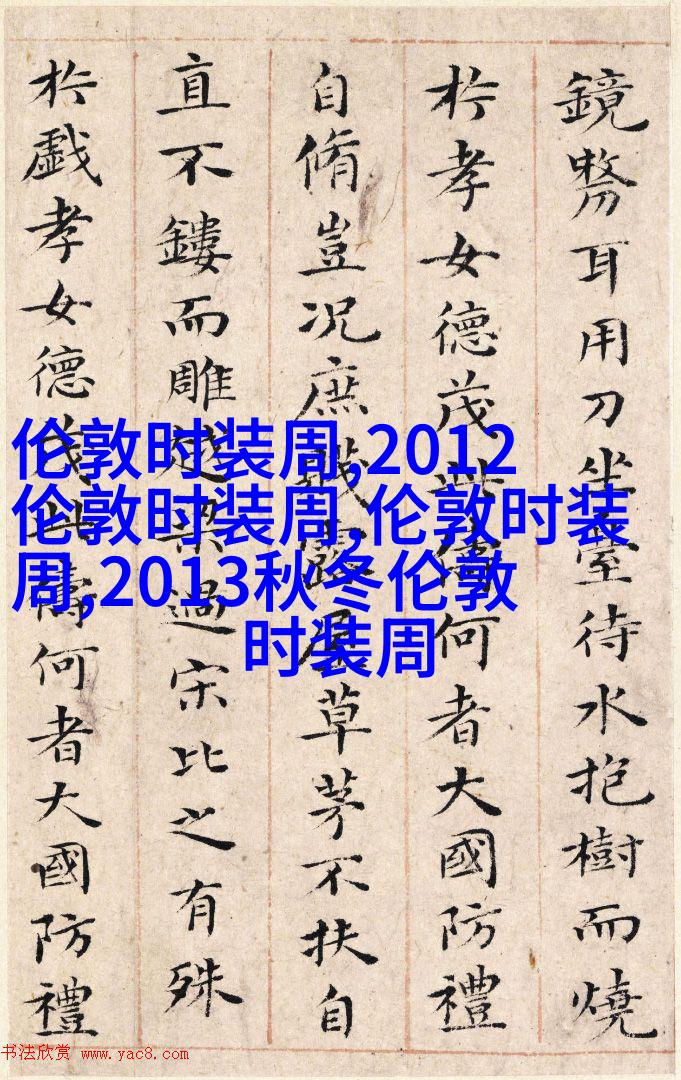 鏡剺耳用刀坐臺待水抱樹而燒
於孝女德茂此儔何者大國防禮
自脩豈况庶賤露屋草茅不扶自
直不鏤而雕越梁過宋比之有殊
於戲孝女德茂此儔何者大國防禮
伦敦时装周,2012
伦敦时装周,伦敦时装
周,2013秋冬伦敦
时装周
书法欣赏 www.yac8.com